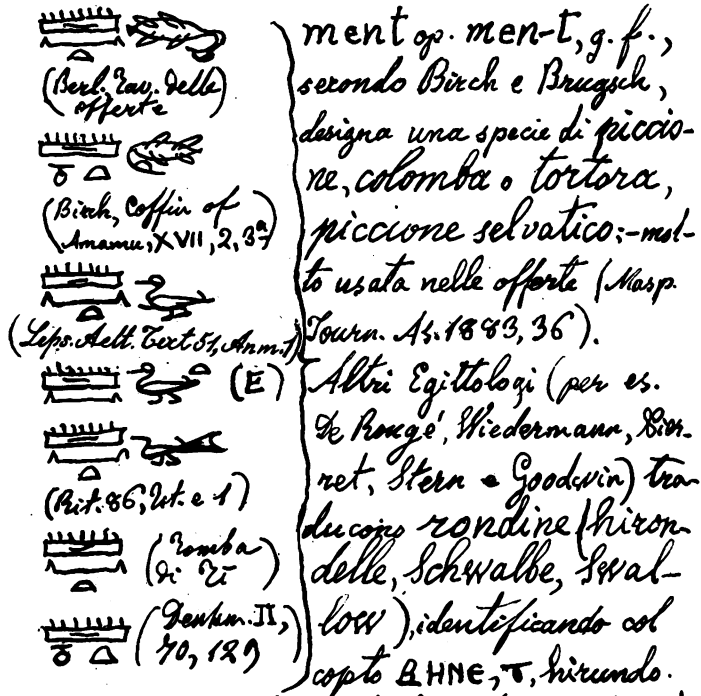 (Berl. Tav. delle
offerte)
(Birch, Coffin of
Amamu, XVII, 2, 3ª)
(Leps. Aelt. Text 51, Anm. 1)
(E)
(Rit. 86, tit. e 1)
(Tomba
di Ti)
(Denkm. II,
70, 129)
ment op. men-t, g. f.,
secondo Birch e Brugsch,
designa una specie di piccio-
ne, colomba o tortora,
piccione selvatico; - mol-
to usata nelle offerte (Masp.
Journ. As. 1883, 36).
Altri Egittologi (per es.
De Rougé, Wiedermann, Pier-
ret, Stern e Goodwin) tra-
ducono rondine (hiron-
delle, Schwalbe, Swal-
low), identificando col
copto ⲂΗΝΕ, Ⲧ, hirundo.